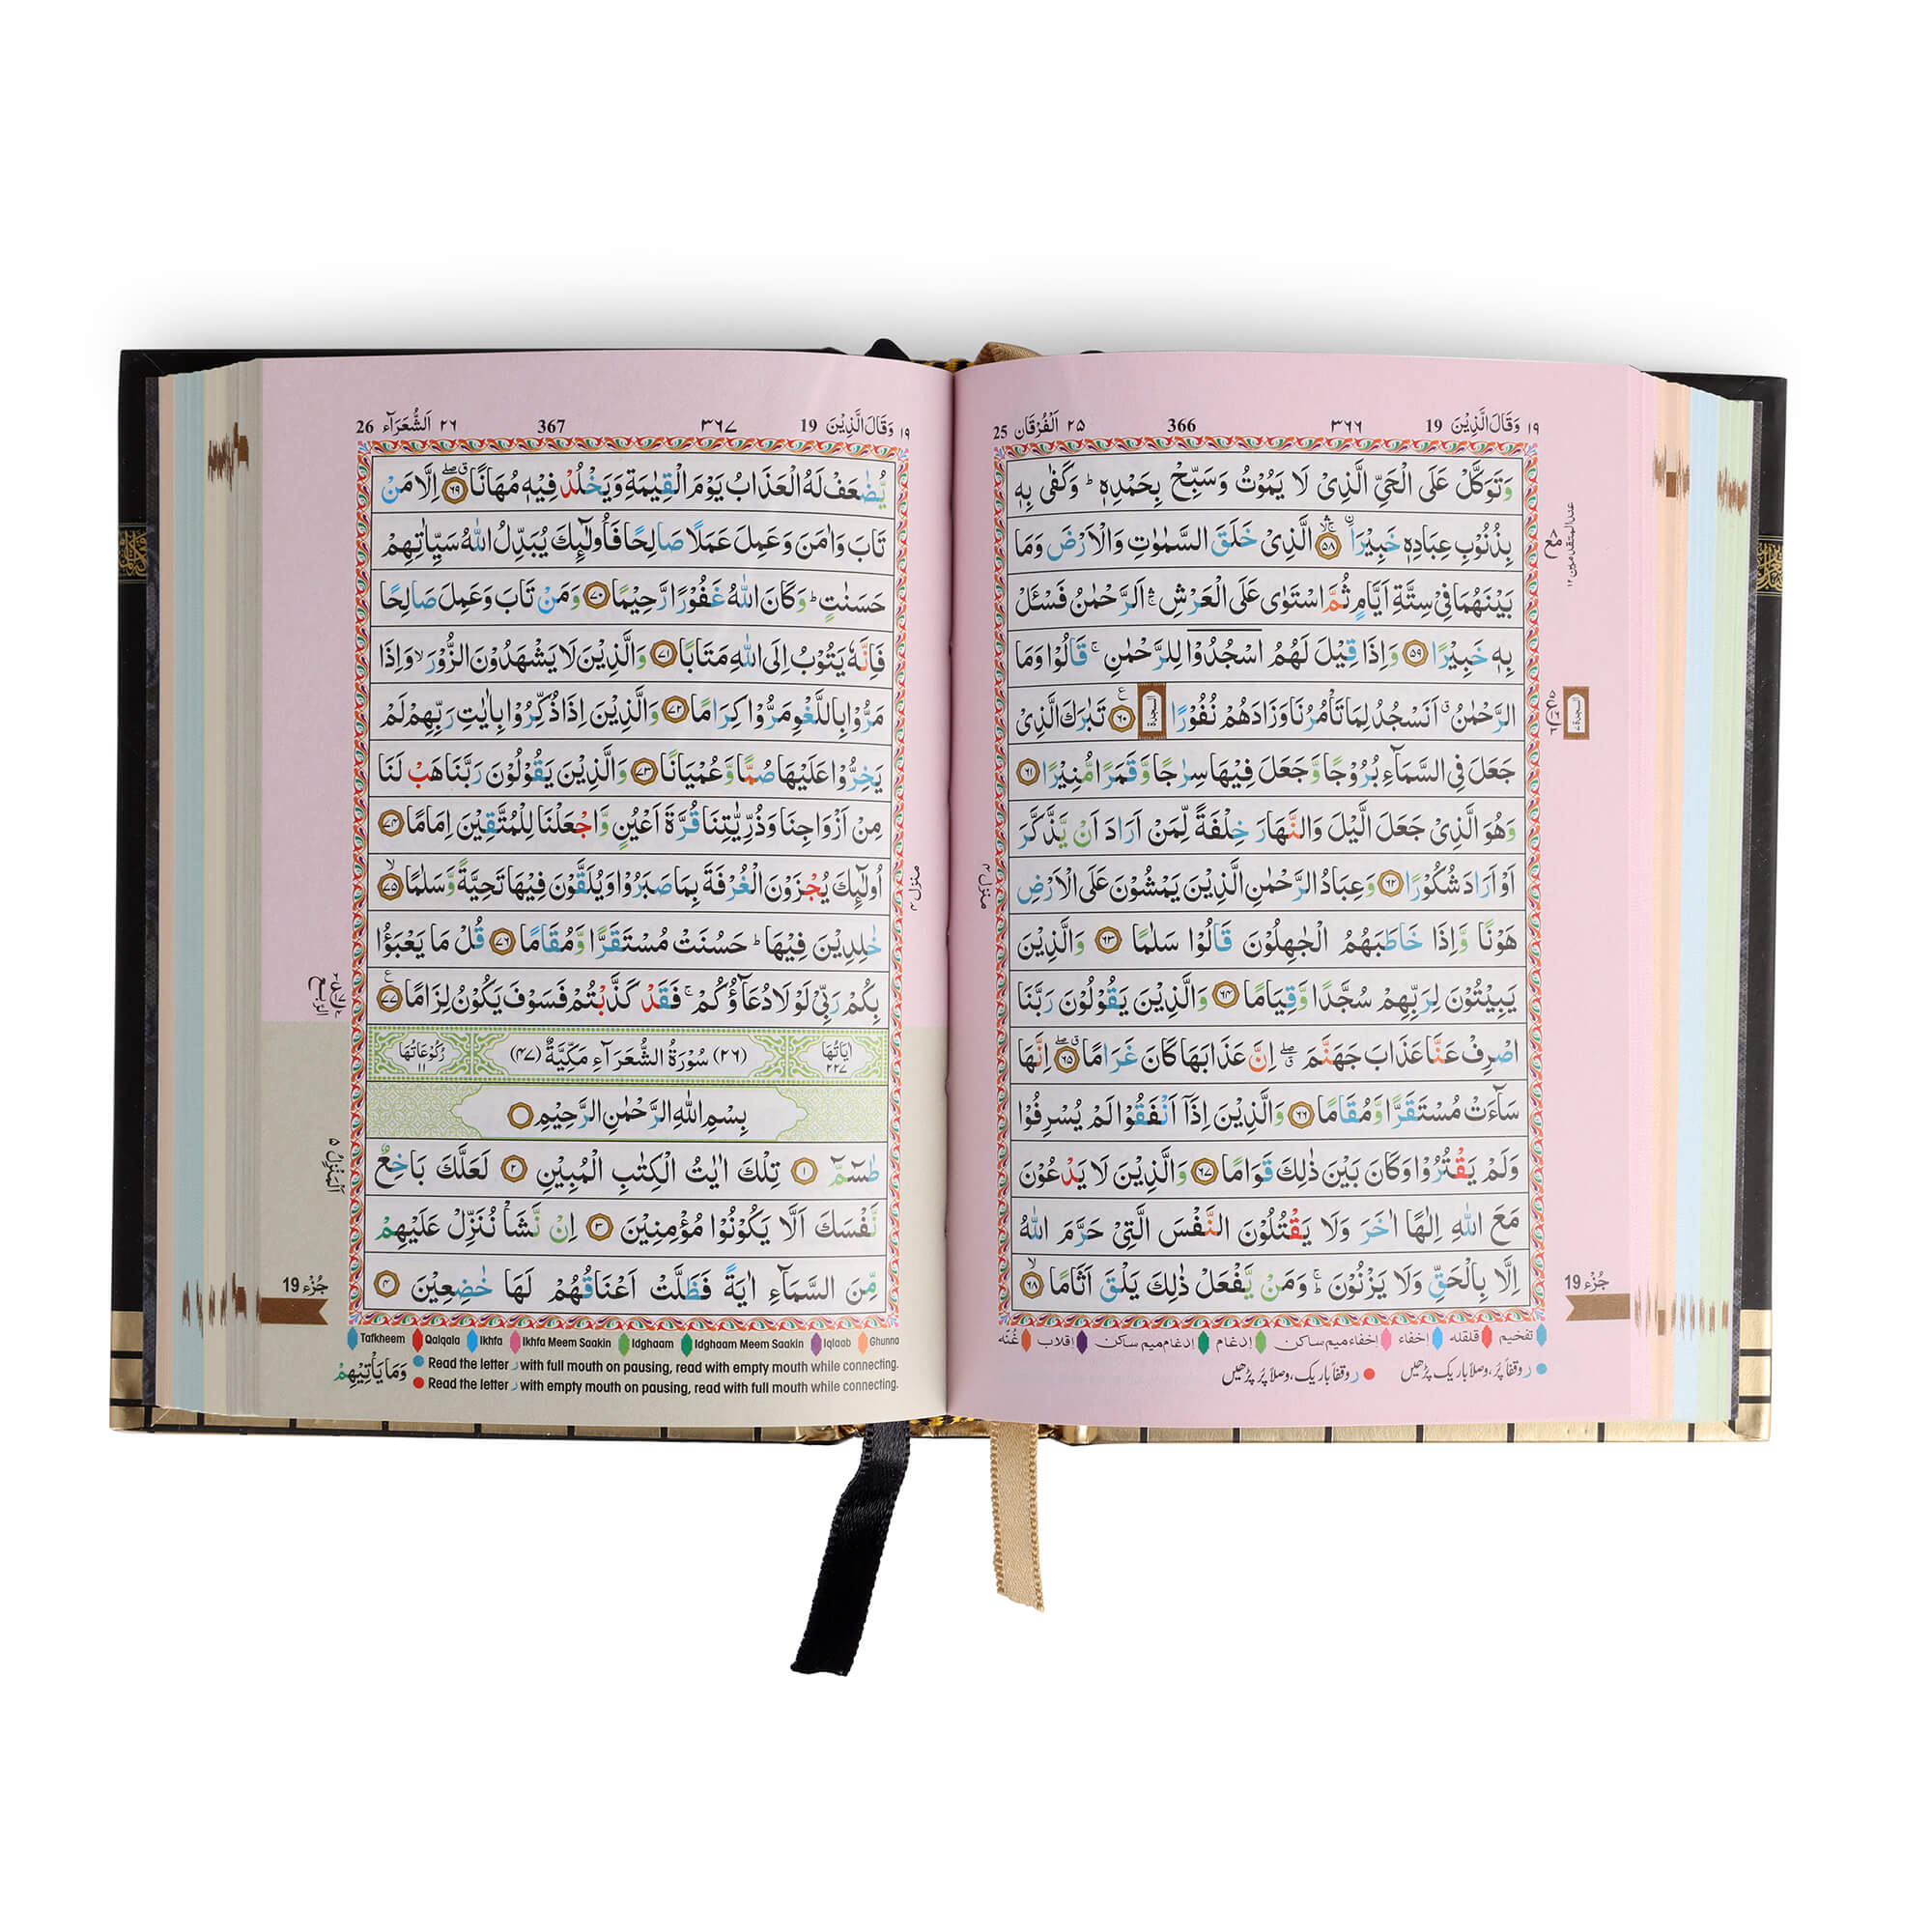 ١٩ وَقَالَ الَّذِيْنَ 19 ٣٦٦ 366 ٢٥ اَلْفُرْقَان 25
وَتَوَكَّلْ عَلَى الْحَيِّ الَّذِىْ لَا يَمُوْتُ وَسَبِّحْ بِحَمْدِهٖ ؕ وَكَفٰى بِهٖ
بِذُنُوْبِ عِبَادِهٖ خَبِيْرَا ۛۚ ۙ ٥٨ الَّذِىْ خَلَقَ السَّمٰوٰتِ وَالْاَرْضَ وَمَا
بَيْنَهُمَا فِىْ سِتَّةِ اَيَّامٍ ثُمَّ اسْتَوٰى عَلَى الْعَرْشِ ۛۚ اَلرَّحْمٰنُ فَسْـَٔلْ
بِهٖ خَبِيْرًا ٥٩ وَاِذَا قِيْلَ لَهُمُ اسْجُدُوْا لِلرَّحْمٰنِ ۚ قَالُوْا وَمَا
الرَّحْمٰنُ ۗ اَنَسْجُدُ لِمَا تَاْمُرُنَا وَزَادَهُمْ نُفُوْرًا السجدة ٦٠ تَبٰرَكَ الَّذِىْ
جَعَلَ فِى السَّمَآءِ بُرُوْجًا وَّجَعَلَ فِيْهَا سِرٰجًا وَّقَمَرًا مُّنِيْرًا ٦١
وَهُوَ الَّذِىْ جَعَلَ الَّيْلَ وَالنَّهَارَ خِلْفَةً لِّمَنْ اَرَادَ اَنْ يَّذَّكَّرَ
اَوْ اَرَادَ شُكُوْرًا ٦٢ وَعِبَادُ الرَّحْمٰنِ الَّذِيْنَ يَمْشُوْنَ عَلَى الْاَرْضِ
هَوْنًا وَّاِذَا خَاطَبَهُمُ الْجٰهِلُوْنَ قَالُوْا سَلٰمًا ٦٣ وَالَّذِيْنَ
يَبِيْتُوْنَ لِرَبِّهِمْ سُجَّدًا وَّقِيَامًا ٦٤ وَالَّذِيْنَ يَقُوْلُوْنَ رَبَّنَا
اصْرِفْ عَنَّا عَذَابَ جَهَنَّمَ ۖ ق اِنَّ عَذَابَهَا كَانَ غَرَامًا ۖ ق ٦٥ اِنَّهَا
سَآءَتْ مُسْتَقَرًّا وَّمُقَامًا ٦٦ وَالَّذِيْنَ اِذَآ اَنْفَقُوْا لَمْ يُسْرِفُوْا
وَلَمْ يَقْتُرُوْا وَكَانَ بَيْنَ ذٰلِكَ قَوَامًا ٦٧ وَالَّذِيْنَ لَا يَدْعُوْنَ
مَعَ اللّٰهِ اِلٰهًا اٰخَرَ وَلَا يَقْتُلُوْنَ النَّفْسَ الَّتِىْ حَرَّمَ اللّٰهُ
اِلَّا بِالْحَقِّ وَلَا يَزْنُوْنَ ؕ ۚ وَمَنْ يَّفْعَلْ ذٰلِكَ يَلْقَ اَثَامًا ۙ ٦٨
تفخیم قلقله إخفاء إخفاء میم ساکن إدغام إدغام میم ساکن إقلاب غُنّه
ر وقفاً پُر، وصلاً باریک پڑھیں ر وقفاً باریک، وصلاً پُر پڑھیں
السجدة
منزل ٤
جُزْء 19
١٩ وَقَالَ الَّذِيْنَ 19 ٣٦٧ 367 ٢٦ اَلشُّعَرَآء 26
يُّضٰعَفْ لَهُ الْعَذَابُ يَوْمَ الْقِيٰمَةِ وَيَخْلُدْ فِيْهٖ مُهَانًا ۖ ق ٦٩ اِلَّا مَنْ
تَابَ وَاٰمَنَ وَعَمِلَ عَمَلًا صَالِحًا فَاُولٰٓئِكَ يُبَدِّلُ اللّٰهُ سَيِّاٰتِهِمْ
حَسَنٰتٍ ؕ وَكَانَ اللّٰهُ غَفُوْرًا رَّحِيْمًا ٧٠ وَمَنْ تَابَ وَعَمِلَ صَالِحًا
فَاِنَّهٗ يَتُوْبُ اِلَى اللّٰهِ مَتَابًا ٧١ وَالَّذِيْنَ لَا يَشْهَدُوْنَ الزُّوْرَ ۙ وَاِذَا
مَرُّوْا بِاللَّغْوِ مَرُّوْا كِرَامًا ٧٢ وَالَّذِيْنَ اِذَا ذُكِّرُوْا بِاٰيٰتِ رَبِّهِمْ لَمْ
يَخِرُّوْا عَلَيْهَا صُمًّا وَّعُمْيَانًا ٧٣ وَالَّذِيْنَ يَقُوْلُوْنَ رَبَّنَا هَبْ لَنَا
مِنْ اَزْوَاجِنَا وَذُرِّيّٰتِنَا قُرَّةَ اَعْيُنٍ وَّاجْعَلْنَا لِلْمُتَّقِيْنَ اِمَامًا ٧٤
اُولٰٓئِكَ يُجْزَوْنَ الْغُرْفَةَ بِمَا صَبَرُوْا وَيُلَقَّوْنَ فِيْهَا تَحِيَّةً وَّسَلٰمًا ۙ ٧٥
خٰلِدِيْنَ فِيْهَا ؕ حَسُنَتْ مُسْتَقَرًّا وَّمُقَامًا ٧٦ قُلْ مَا يَعْبَؤُا
بِكُمْ رَبِّىْ لَوْ لَا دُعَآؤُكُمْ ۚ فَقَدْ كَذَّبْتُمْ فَسَوْفَ يَكُوْنُ لِزَامًا ٧٧
اٰيَاتُهَا ٢٢٧ (٢٦) سُوْرَةُ الشُّعَرَآءِ مَكِّيَّةٌ (٤٧) رُكُوْعَاتُهَا ١١
بِسْمِ اللّٰهِ الرَّحْمٰنِ الرَّحِيْمِ
طٰسٓمّٓ ١ تِلْكَ اٰيٰتُ الْكِتٰبِ الْمُبِيْنِ ٢ لَعَلَّكَ بَاخِعٌ
نَّفْسَكَ اَلَّا يَكُوْنُوْا مُؤْمِنِيْنَ ٣ اِنْ نَّشَاْ نُنَزِّلْ عَلَيْهِمْ
مِّنَ السَّمَآءِ اٰيَةً فَظَلَّتْ اَعْنَاقُهُمْ لَهَا خٰضِعِيْنَ ٤
Tafkheem Qalqala Ikhfa Ikhfa Meem Saakin Idghaam Idghaam Meem Saakin Iqlaab Ghunna
Read the letter ر with full mouth on pausing, read with empty mouth while connecting.
Read the letter ر with empty mouth on pausing, read with full mouth while connecting.
وَمَا يَاْتِيْهِمْ
منزل ٤
اَلْمَنْزِلُ ٥
جُزْء 19